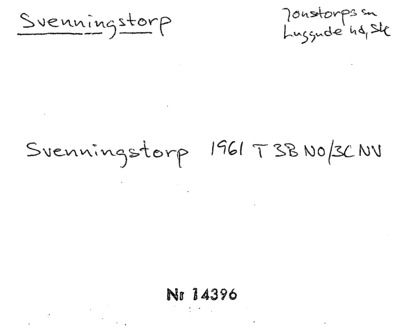 Svenningstorp
Jonstorps sn
Luggude hd, Sk
Svenningstorp 1961 T 3B NO/3C NV
Nr 14396